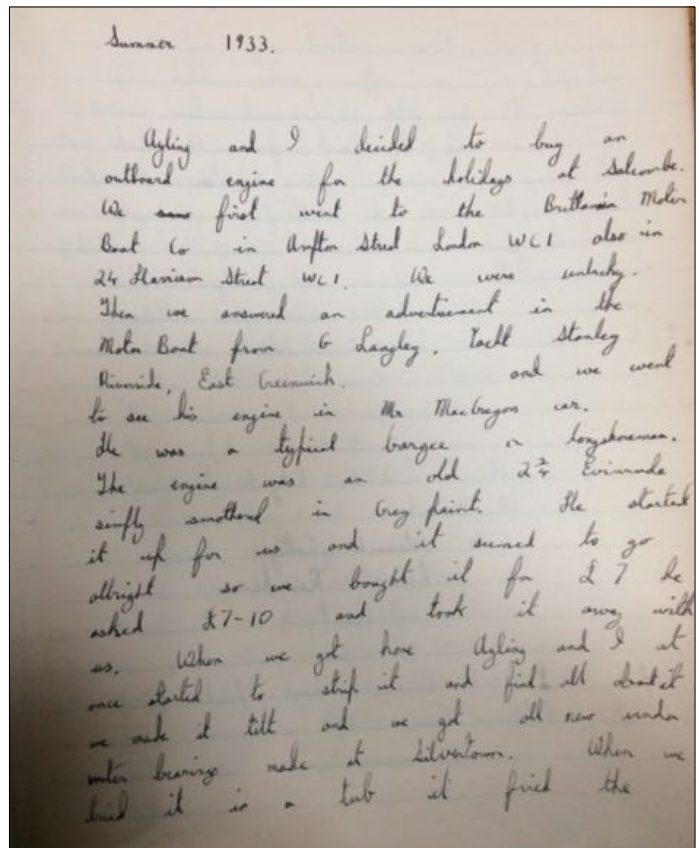 Summer 1933.
Ayling and I decided to buy an
outboard engine for the holidays at Salcombe.
We first went to the Brittania Motor
Boat Co in Ampton Street London WC1 also in
24 Harrison Street WC1. We were unlucky.
Then we answered an advertisement in the
Motor Boat from G Langley. Yacht Stanley
Riverside, East Greenwich. and we went
to see his engine in Mr MacGregor car.
He was a typical bargee or longshoreman.
The engine was an old 2¾ Evinrude
simply smothered in Grey paint. He started
it up for us and it seemed to go
allright so we bought it for £7 he
asked £7-10 and took it away with
us. When we got home Ayling and I at
once started to strip it and find all about it
we made it tilt and we got all new under
water bearings made at Silvertown. When we
tried it in a tub it fired the